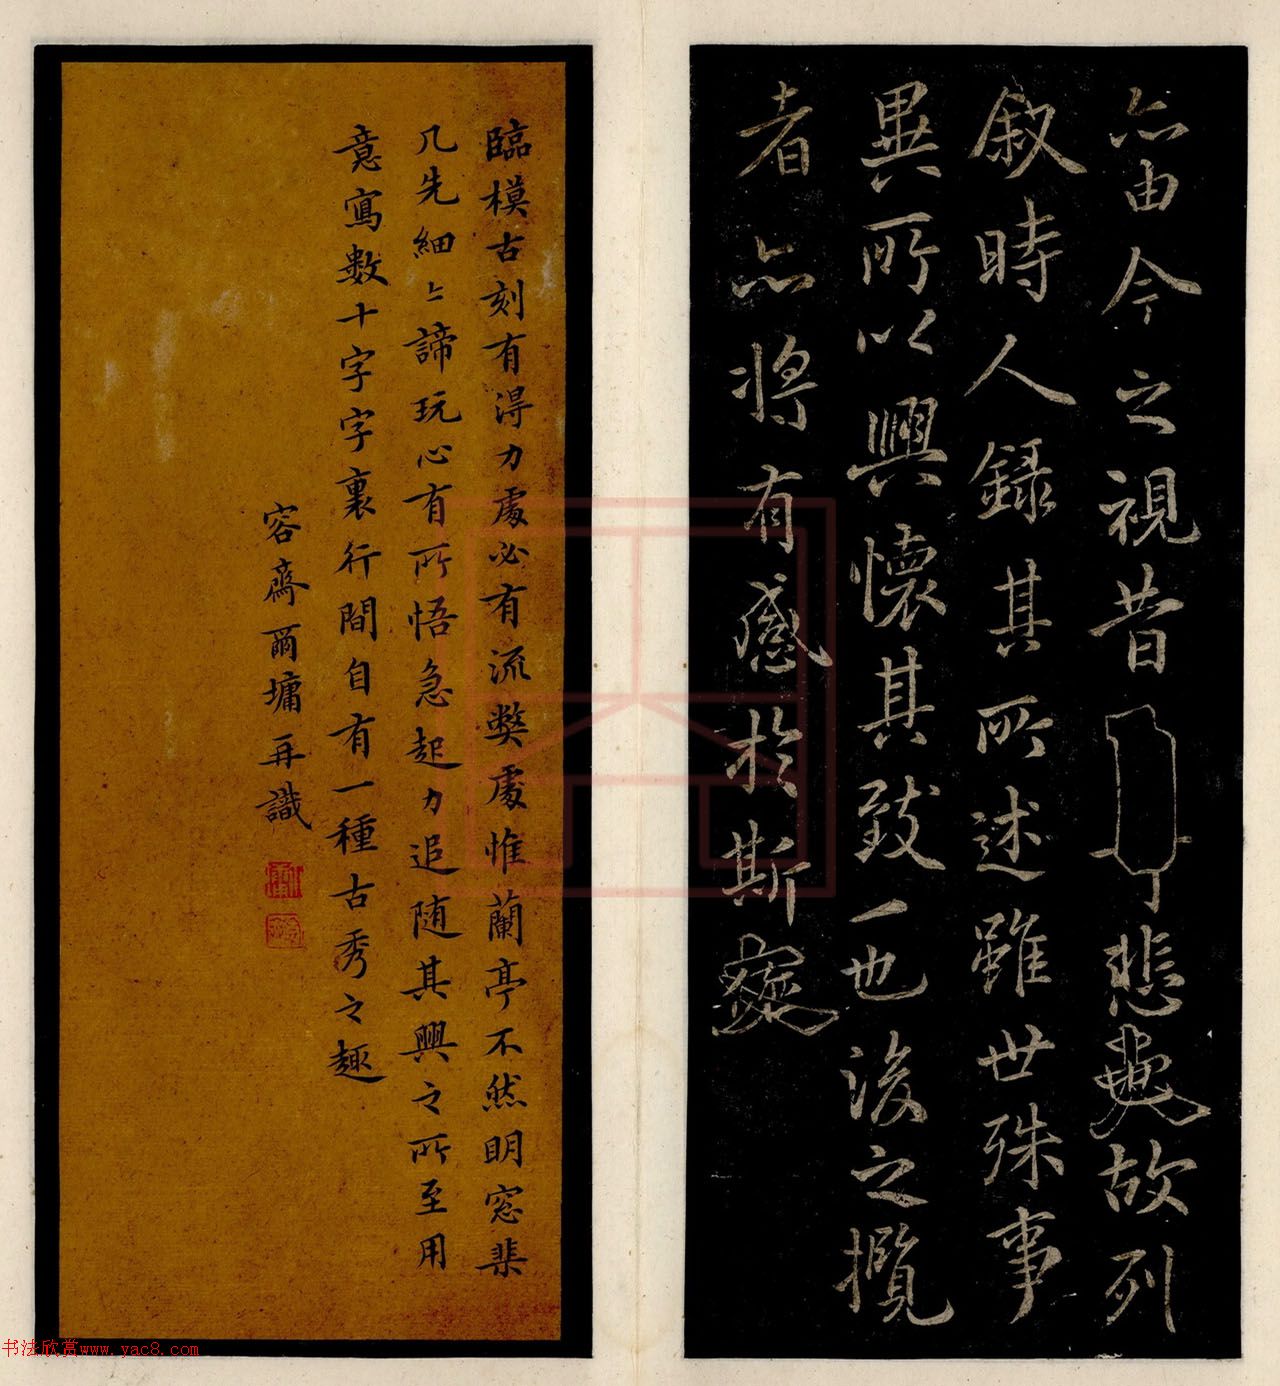 亦由今之視昔悲夫故列
敘時人錄其所述雖世殊事
異所以興懷其致一也後之攬
者亦將有感於斯文
臨模古刻有得力處必有流弊處惟蘭亭不然明窓棐
几先細〻諦玩心有所悟急起力追随其興之所至用
意寫數十字字裏行間自有一種古秀之趣
容齋爾墉再識
书法欣赏www.yac8.com